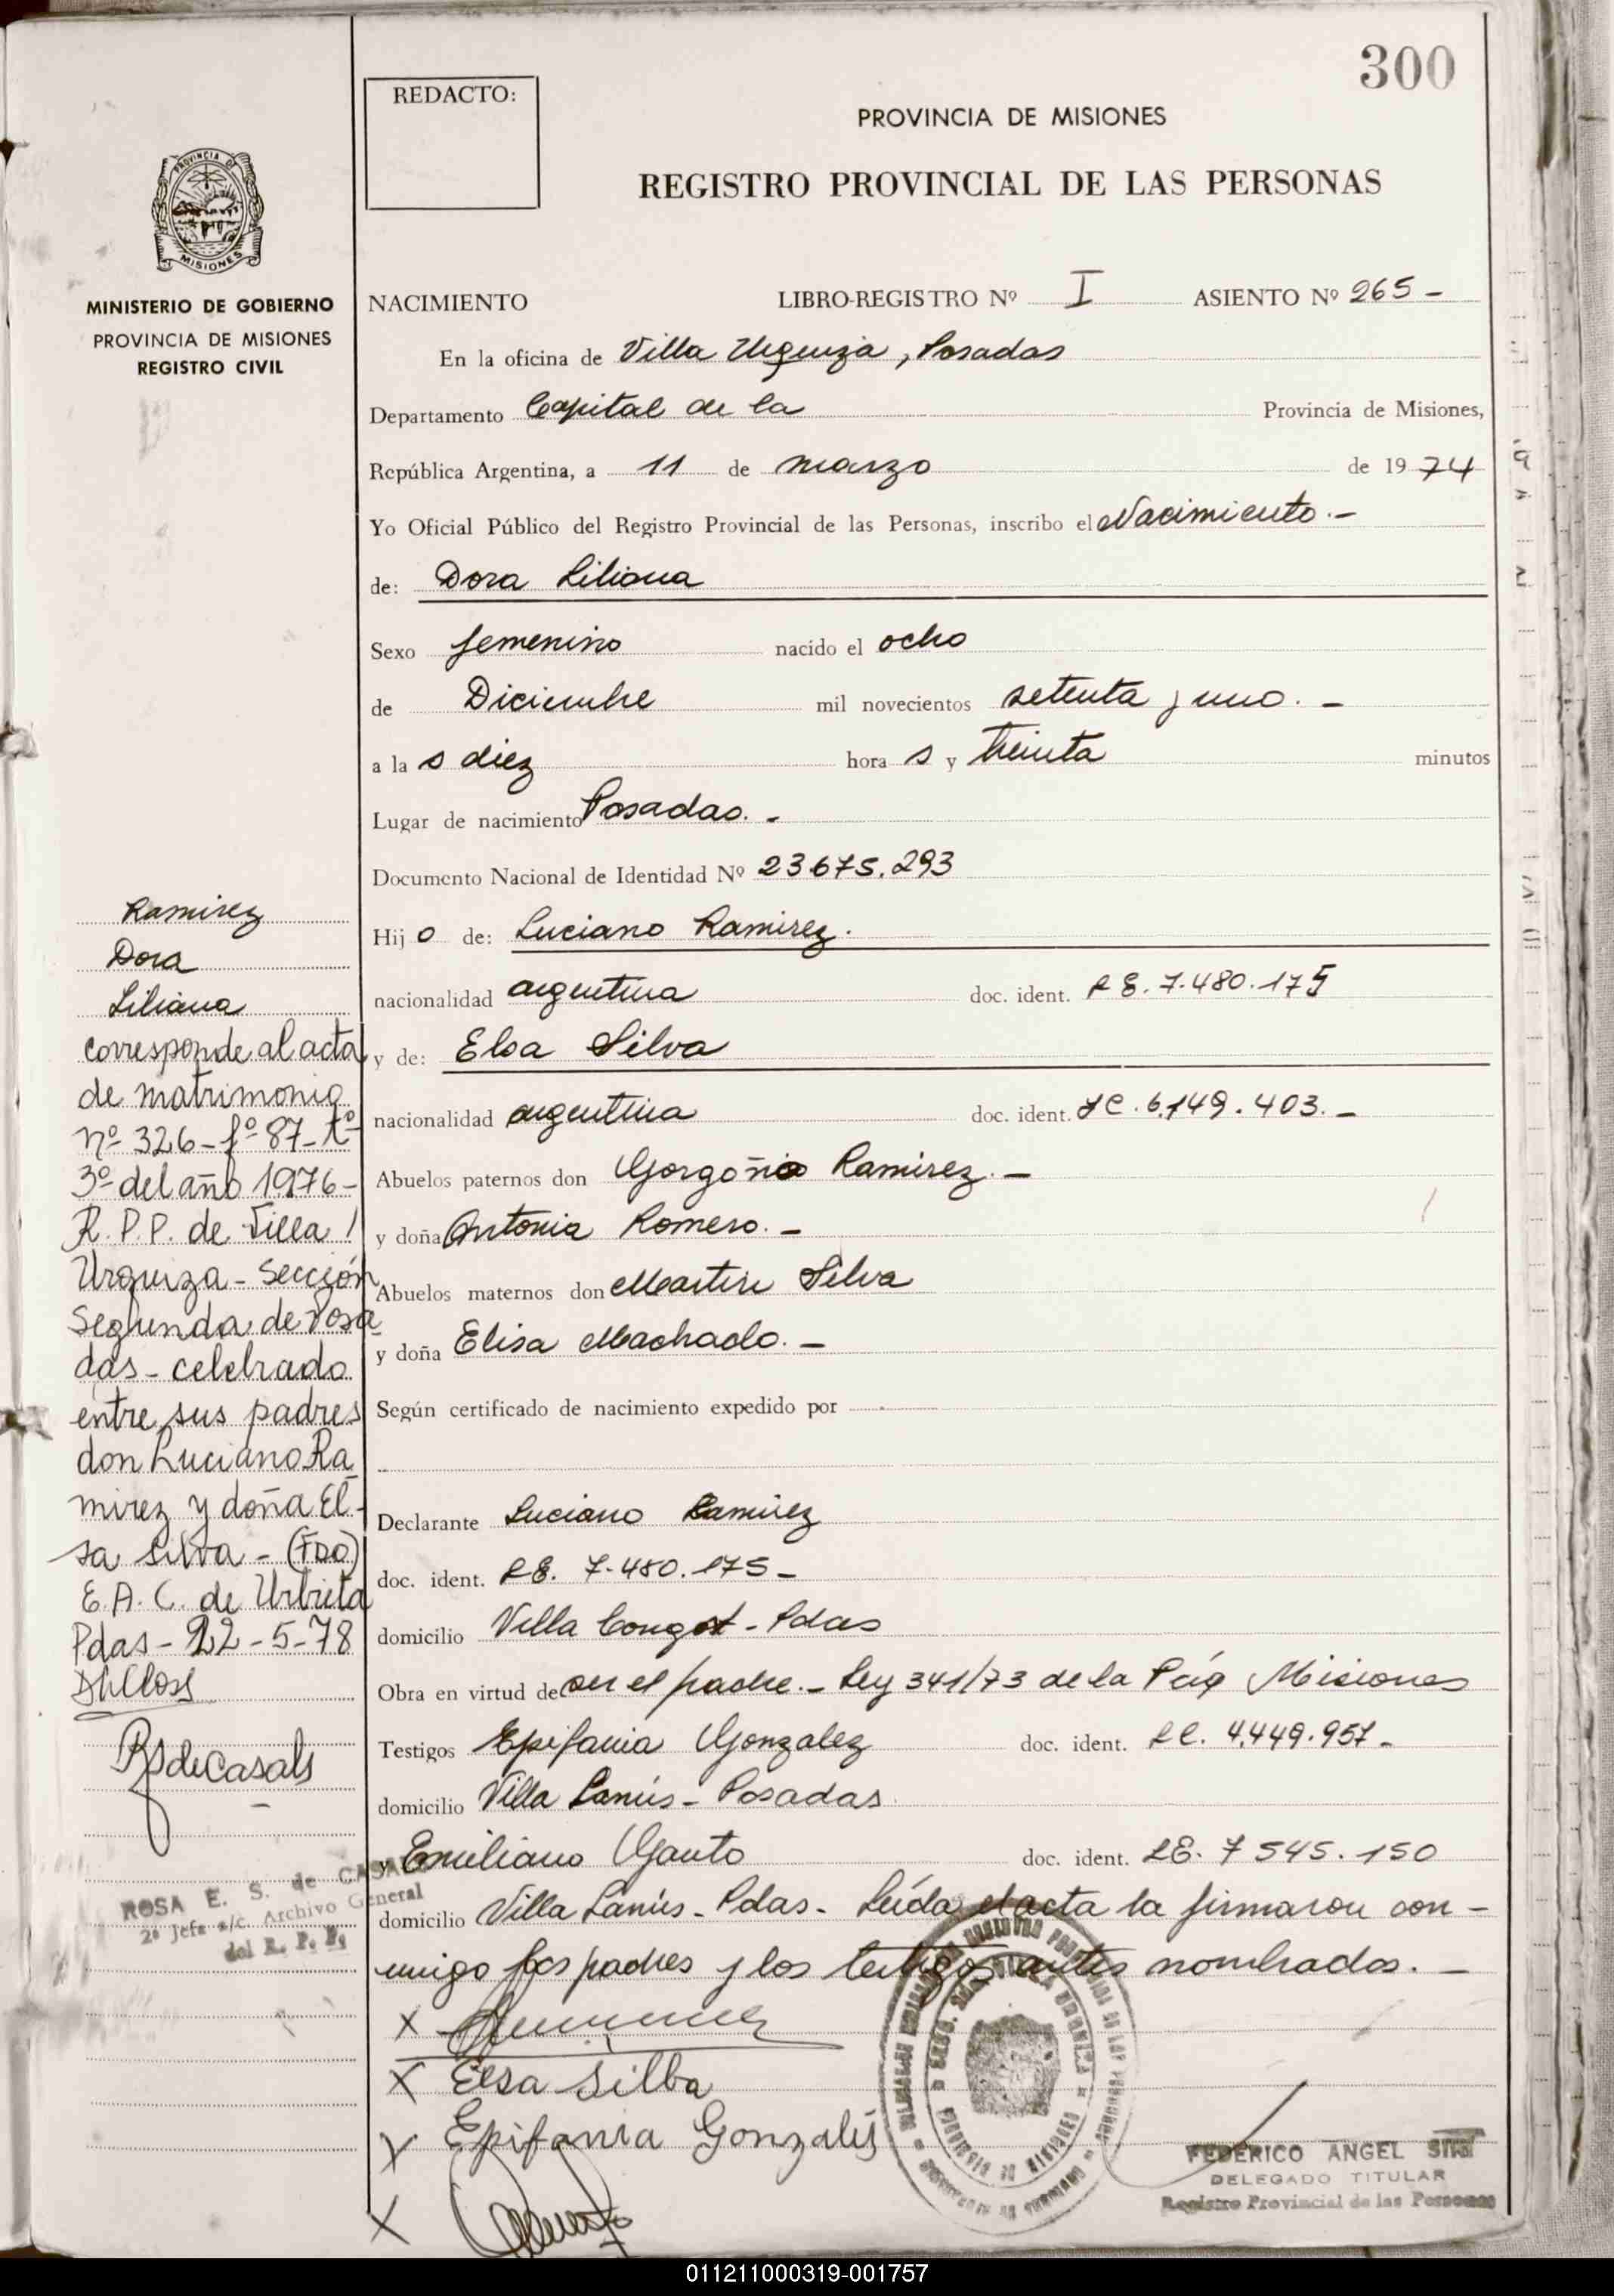 300
REDACTO:
PROVINCIA DE MISIONES
REGISTRO PROVINCIAL DE LAS PERSONAS
PROVINCIA DE
MISIONES
MINISTERIO DE GOBIERNO
PROVINCIA DE MISIONES
REGISTRO CIVIL
NACIMIENTO LIBRO-REGISTRO Nº I ASIENTO Nº 265 -
En la oficina de Villa Urquiza, Posadas
Departamento Capital de la Provincia de Misiones,
República Argentina, a 11 de marzo de 1974
Yo Oficial Público del Registro Provincial de las Personas, inscribo el Nacimiento.-
de: Dora Liliana
Sexo femenino nacido el ocho
de Diciembre mil novecientos setenta y uno. -
a la s diez hora s y treinta minutos
Lugar de nacimiento Posadas. -
Documento Nacional de Identidad Nº 23.675.293
Hij o de: Luciano Ramirez.
nacionalidad argentina doc. ident. L E. 7.480.175
y de: Elsa Silva
nacionalidad argentina doc. ident. LC. 6.149.403. -
Abuelos paternos don Gorgoñio Ramirez. -
y doña Antonia Romero. -
Abuelos maternos don Martin Silva
y doña Elisa Machado. -
Según certificado de nacimiento expedido por
Declarante Luciano Ramirez
doc. ident. L E. 7.480.175 -
domicilio Villa - Pdas
Obra en virtud de ser el padre. - Ley 341/73 de la Misiones
Testigos Epifania Gonzalez doc. ident. L C. 4.449.957 -
domicilio Villa Lanús - Posadas
y Emiliano Gauto doc. ident. LE. 7 545.150
domicilio Villa Lanús - Pdas - Leída el acta la firmaron con -
migo los padres y los testigos antes nombrados. -
X
X Elsa Silba
X Epifania Gonzalés
X
Ramirez
Dora
Liliana
corresponde al acta
de matrimonio
nº 326 - fº 87 - tº
3º del año 1976 -
R. P. P. de Villa
Urquiza - Sección
Segunda de Posa
das - celebrado
entre sus padres
don Luciano Ra
mirez y doña El-
sa Silva - (FDO)
E. A. C. de Urbieta
Pdas - 22 - 5 - 78
RSdeCasals
ROSA E. S. de CASALS
2ª Jefe a/c. Archivo General
del R. P. P.
FEDERICO ANGEL
DELEGADO TITULAR
Registro Provincial de las Personas
011211000319-001757